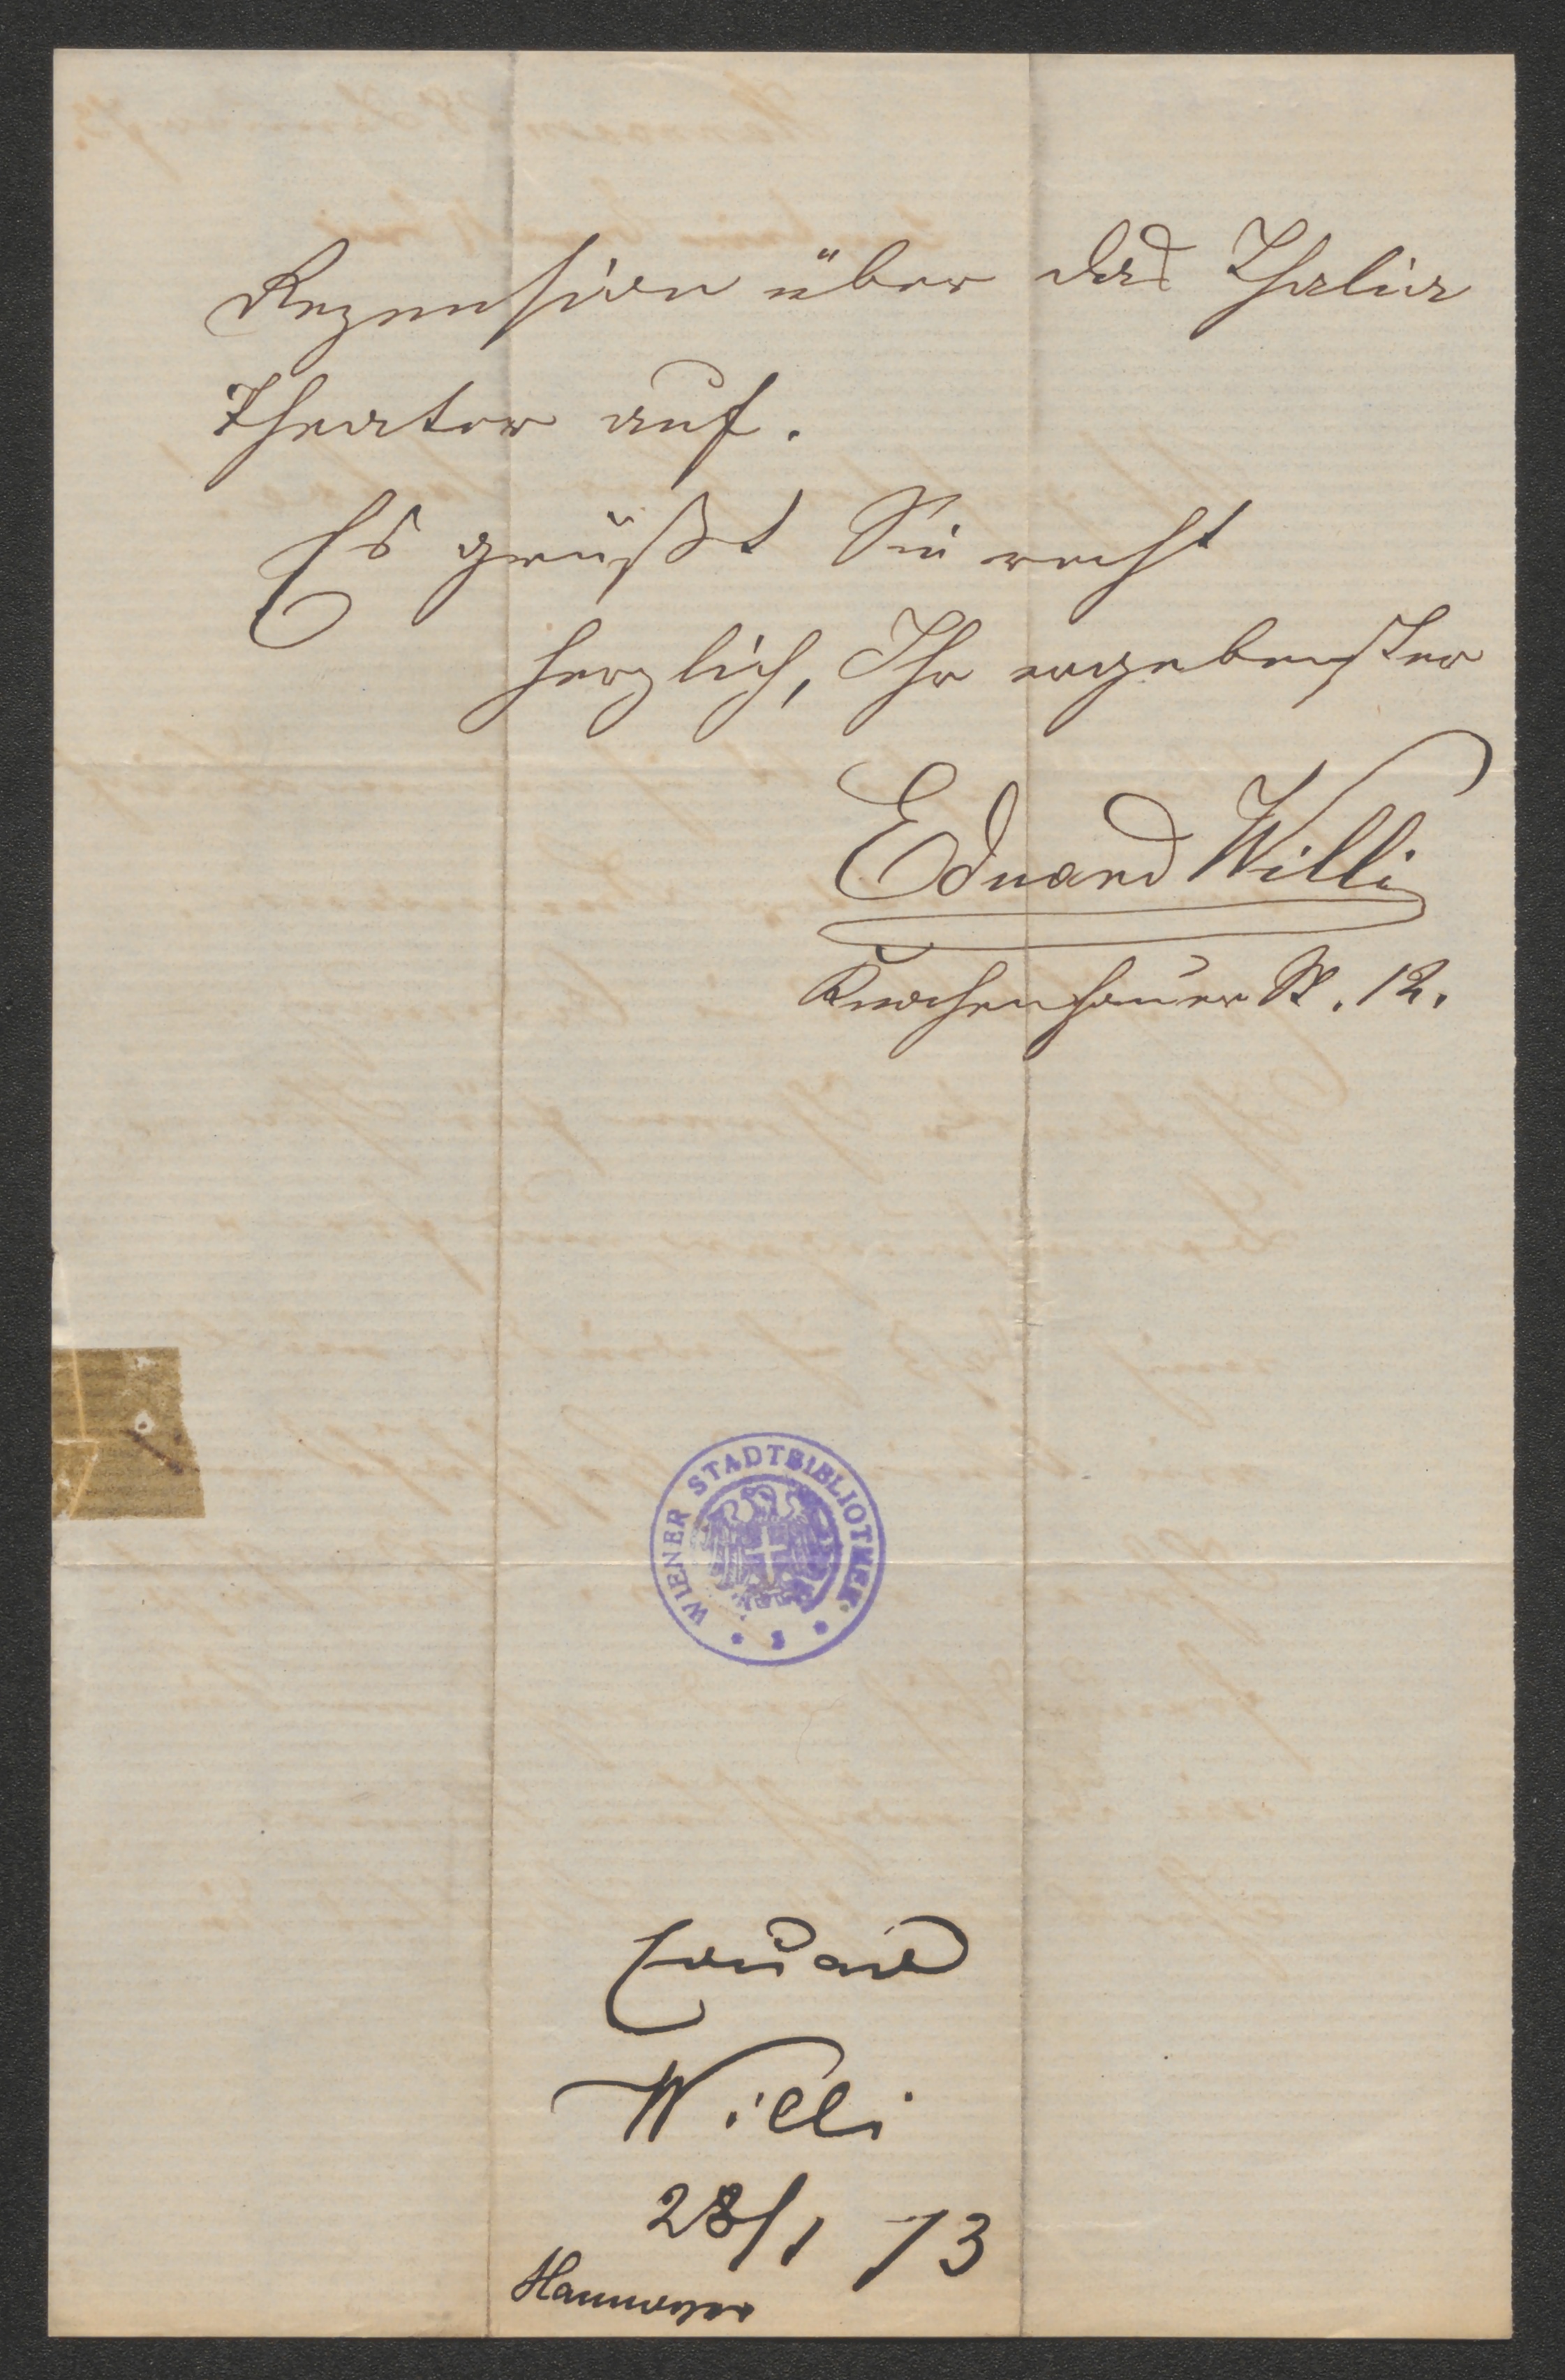 Rezension über das Thalia
Theater auf.
Es grüßt Sie recht
herzlich, Ihr ergebenster
Eduard Willi
Knochenhauer St. 12.
WIENER STADTBIBLIOTHEK
Eduard
Willi
28/1 73
Hannover